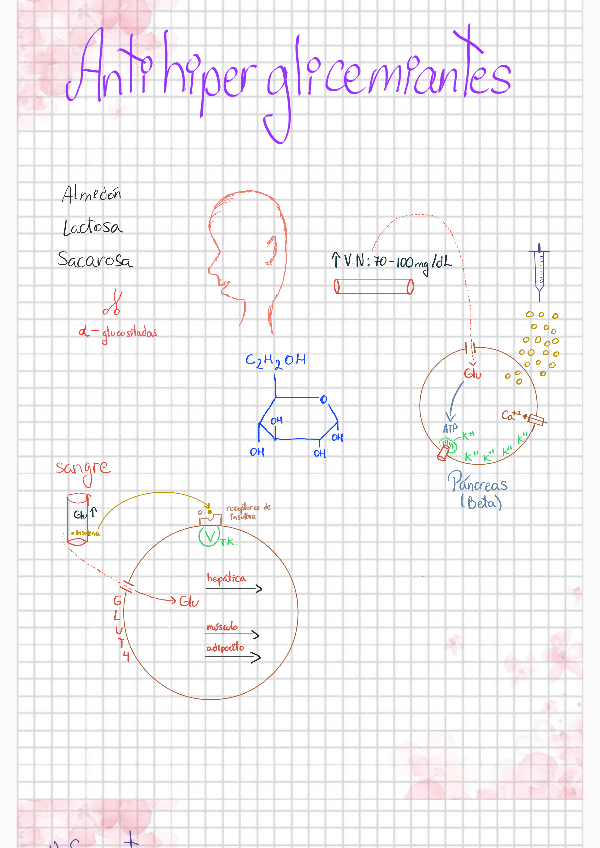 Antihiperglicemiantes
Almedón
Lactosa
Sacarosa
α-glucosiladas
↑VN: 70-100mg/dL
C₂H₂OH
O
OH
OH
OH
OH
Glu
ATP
Ca⁺²
K⁺
K⁺ K⁺ K⁺ K⁺
Páncreas
(Beta)
sangre
Glu ↑
insulina
receptores de
insulina
V
TK.
GLUT4
Glu
hepática
músculo
adipocito